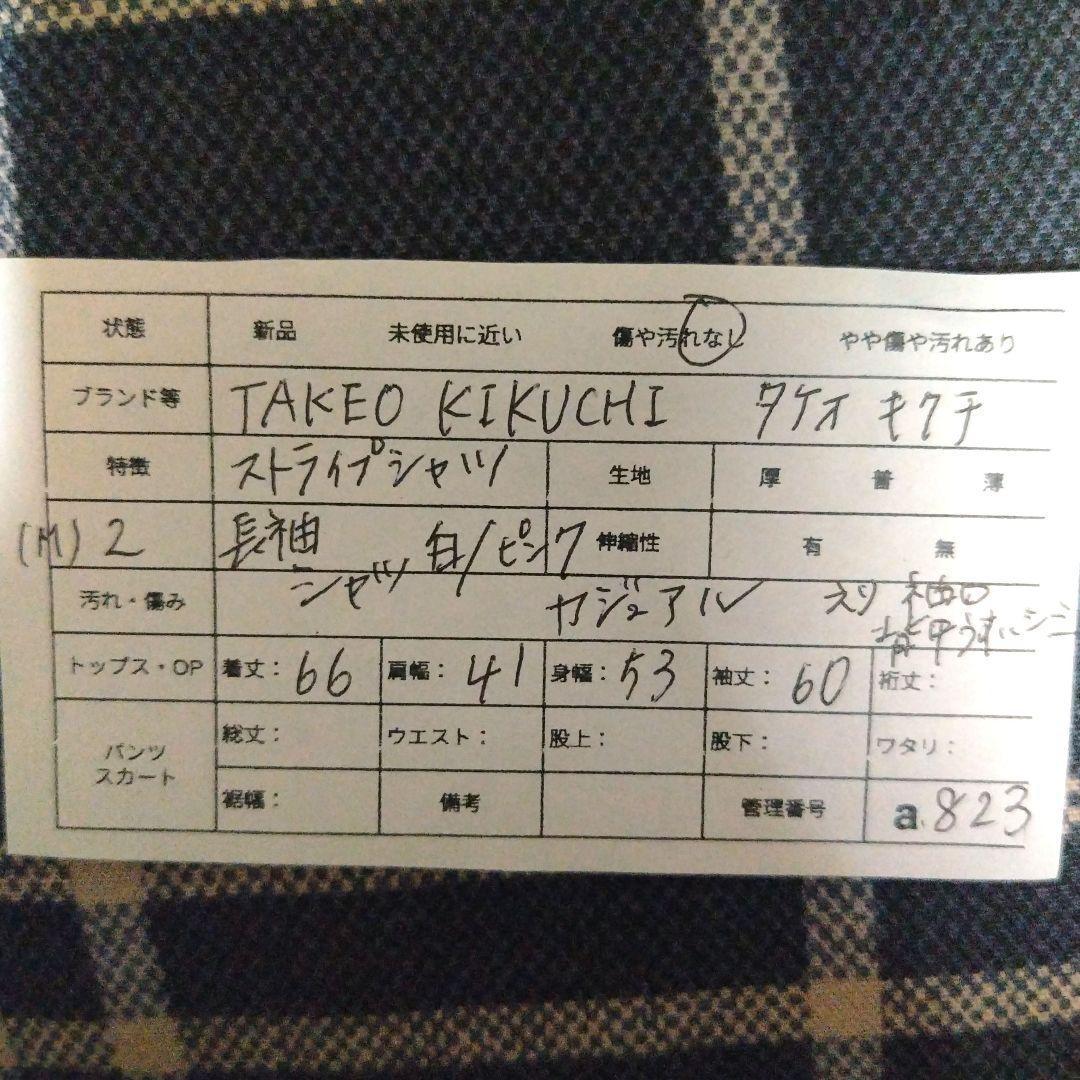 状態 新品 未使用に近い 傷や汚れなし やや傷や汚れあり
ブランド等 TAKEO KIKUCHI タケオ キクチ
特徴 ストライプシャツ 生地 厚 普 薄
(M) 2 長袖 白/ピンク 伸縮性 有 無
シャツ
汚れ・傷み カジュアル えり 袖口
背中うすいシミ
トップス・OP 着丈: 66 肩幅: 41 身幅: 53 袖丈: 60 裄丈:
パンツ 総丈: ウエスト: 股上: 股下: ワタリ:
スカート
裾幅: 備考 管理番号 a.823